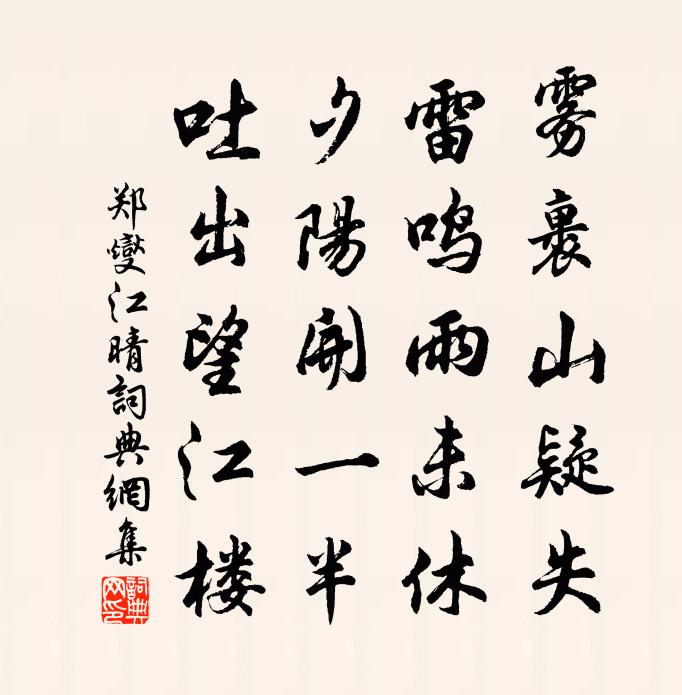 雾裹山疑失
雷鸣雨未休
夕陽開一半
吐出望江楼
郑燮江晴詞典網集
詞典网印